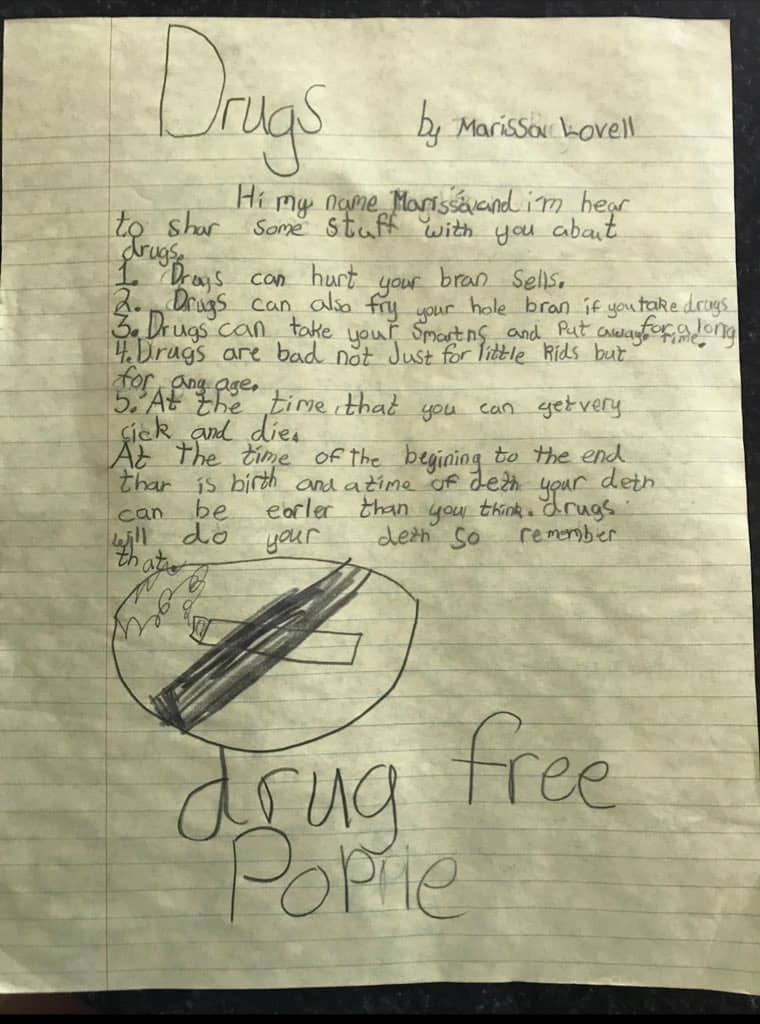 Drugs by Marissa Lovell
Hi my name Marissa and i'm hear
to shar some stuff with you about
drugs.
1. Drugs can hurt your bran sells.
2. Drugs can also fry your hole bran if you take drugs
3. Drugs can take your smartns and put away for a long time.
4. Drugs are bad not Just for little kids but
for any age.
5. At the time, that you can get very
cick and die.
At the time of the begining to the end
thar is birth and a time of deth your deth
can be eorler than you think. drugs
will do your deth so remember
that.
drug free
Pople